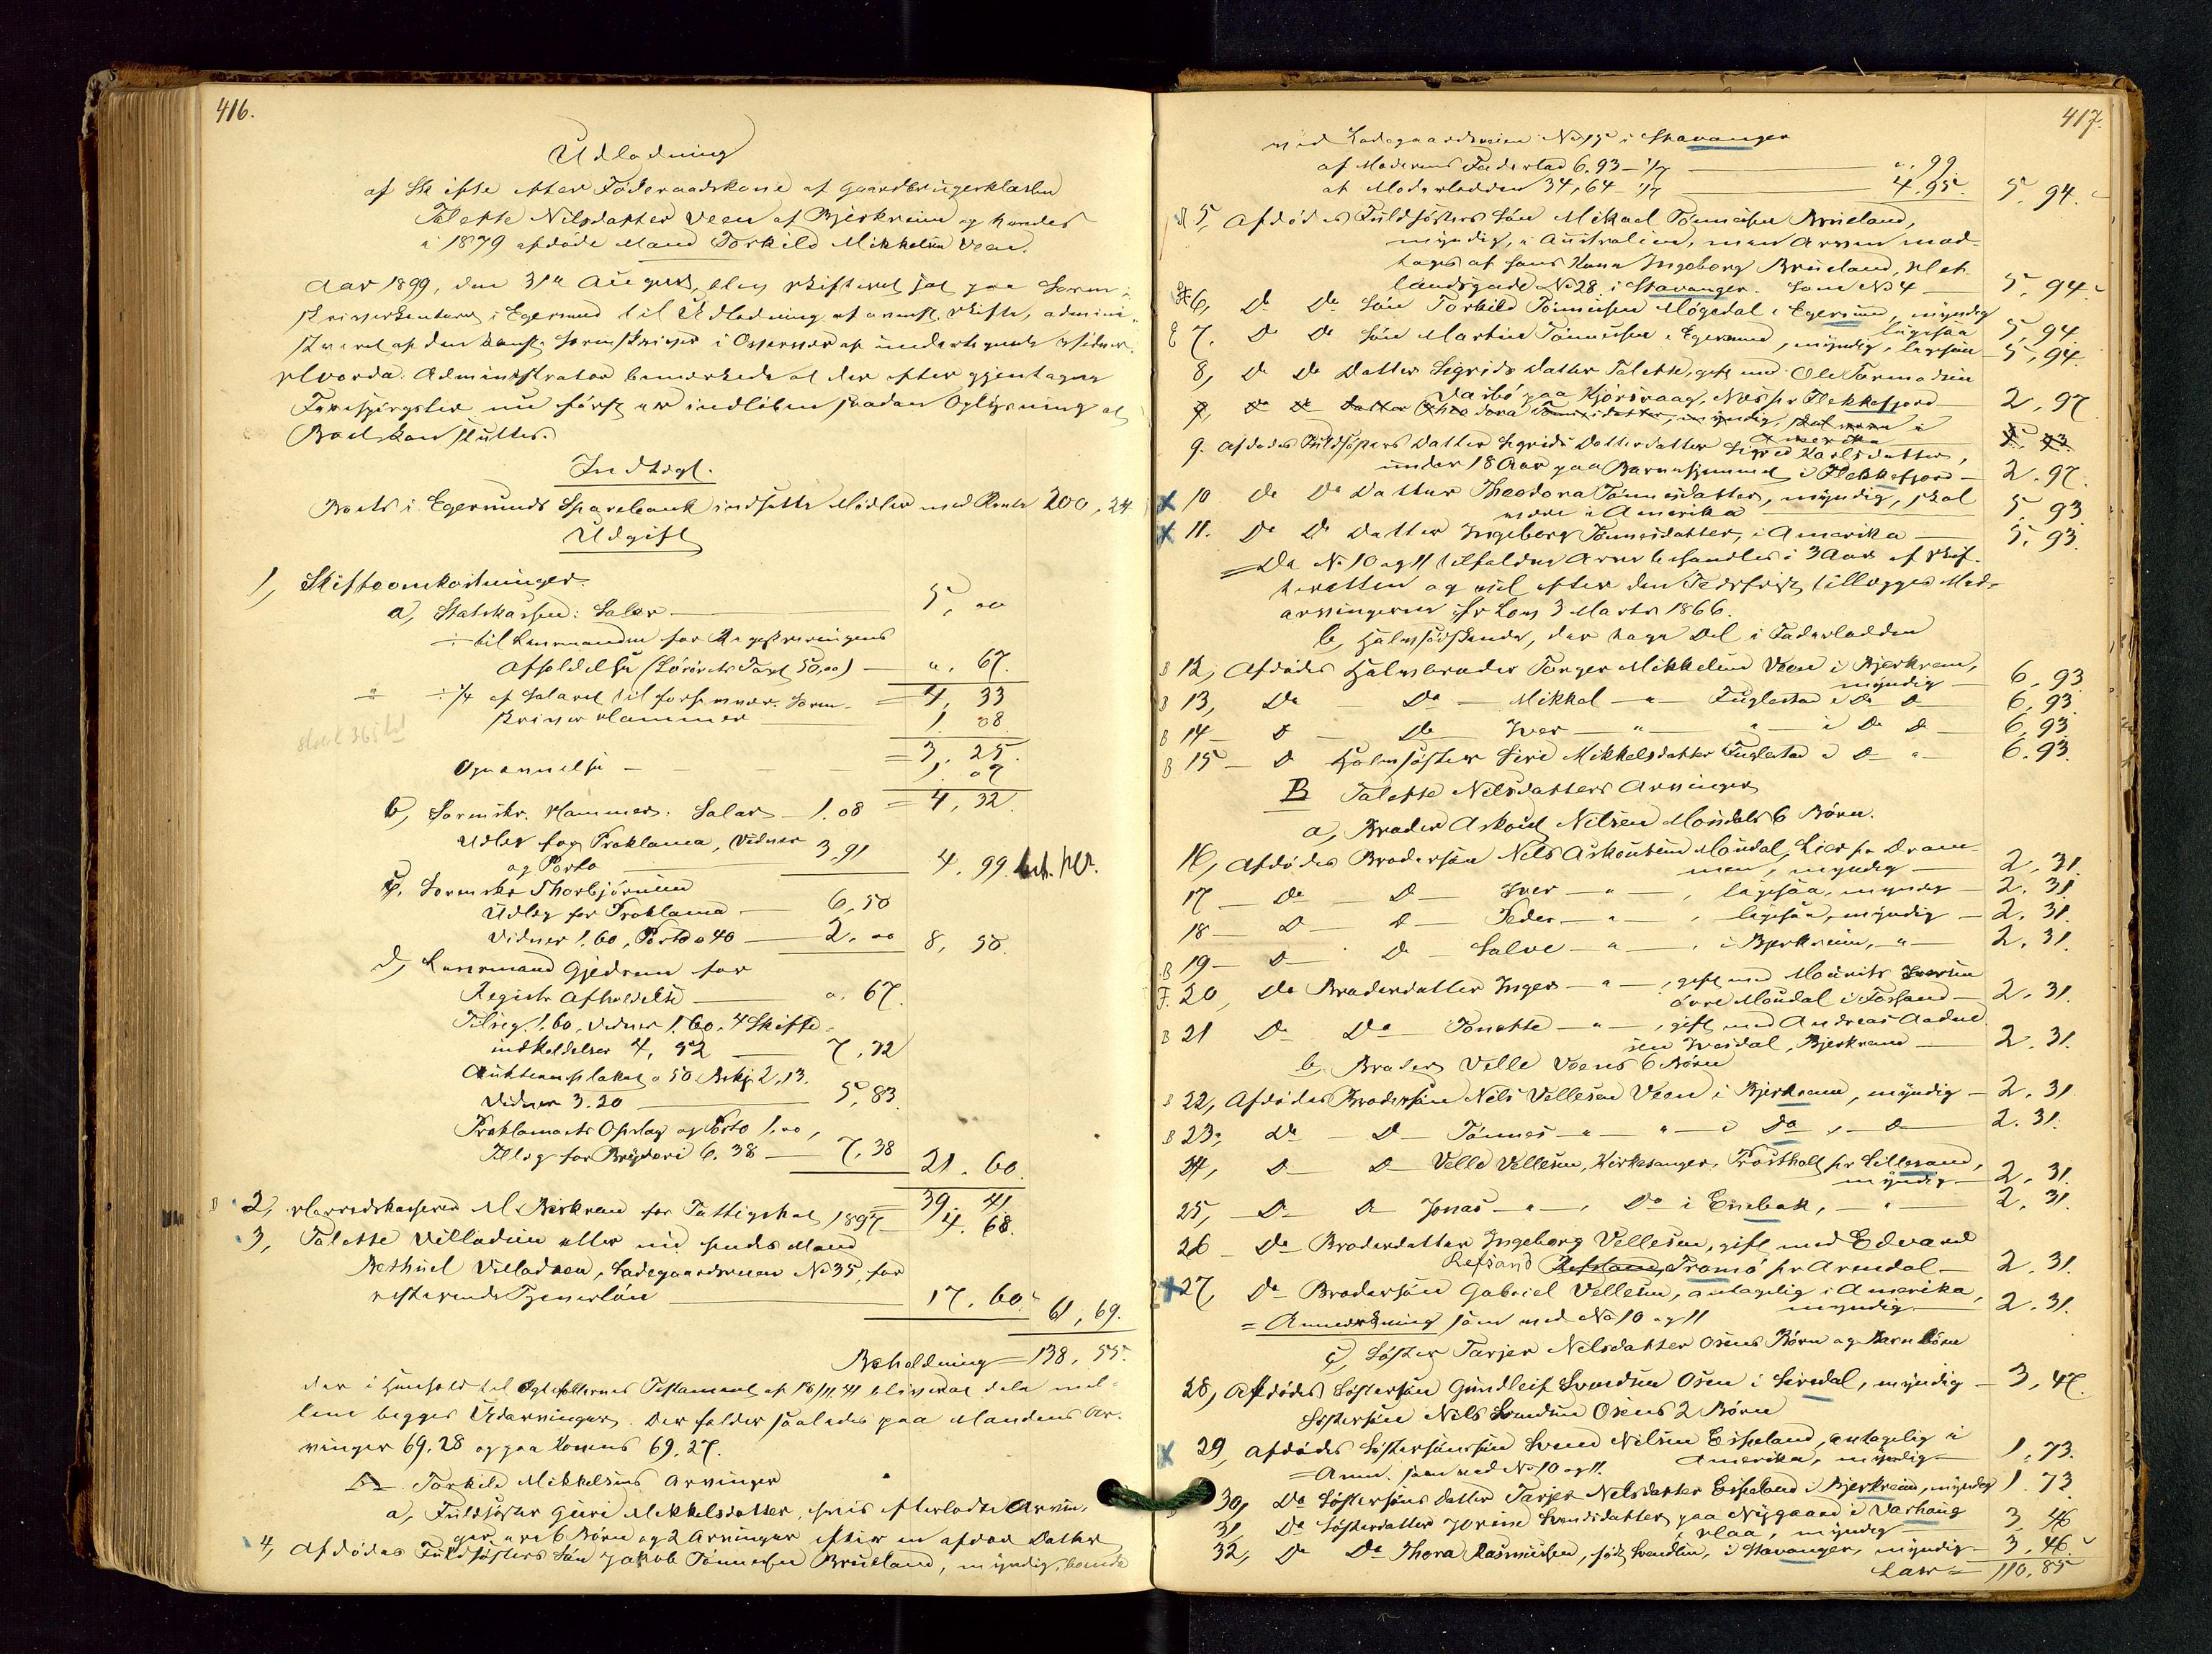 416.
Udlodning
af Skifte efter Föderaadskone af Gaardbrugerklassen
Talette Nilsdatter Veen af Bjerkreim og hendes
i 1879 afdöde Mand Torkild Mikkelsen Veen.
Aar 1899, den 31te August, blev Skifteret sat paa Soren-
skriverkontoret i Egersund til Udlodning af ovennst. Skifte, admini-
streret af den konst. Sorenskriver i Overvær af undertegnede Vidner.
Administrator bemærkede at der efter gjentagne
Forespörgsler nu först er indlöben saadan Oplysning at
Boet kan sluttes.
Indtægt.
Boets i Egersunds Sparebank indsatte Midler med Renter 200,24
Udgift
1, Skifteomkostninger.
a, Statskassen: Salær 5,00
÷ til Lensmanden for Registreringens
Afholdelse (Löröets Taxt 50,00) " . 67.
÷ 1/4 af Salaret til forhenvær. Soren- = 4, 33
skriver Hammer 1. 08
= 3, 25.
Opnævnelse 1. 07
= 4, 32.
b, Sorenskr. Hammer: Salær 1.08
Udlæg for Proklama, Vidner
og Porto 3.91 4.99
c, Sorenskr Thorbjörnsen
Udlæg for Proklama 6,50
Vidner 1.60, Porto 0 40 2.00 8, 50.
d, Lensmand Gjedrem for
Registr Afholdelse 0. 67.
Tilsig. 1.60, Vidner 1.60. 4 Skifte-
indkaldelser 4, 52 7,72
Auktionsplakat 0 50. Bekj. 2,13.
Vidner 3.20 5,83
Proklamaets Opslag og Porto 1.00,
Tillæg for Bryderi 6.38 7,38 21.60
39,41
2, Herredskasserer M. Birkrem for Fattigskat 1897 4.68
3, Talette Villadsen eller ved hendes Mand
Bethuel Villadsen, Ladegaardsveien No 35, for
resterende Tjenerlön 17.60. 61,69.
Beholdning = 138,55.
der i Henhold til Ægtefællernes Testament af 18/11 41 bliver at dele mel-
lem begges Udarvinger. Der falder saaledes paa Mandens Ar-
vinger 69.28 og paa Konens 69.27.
A Torkild Mikkelsens Arvinger
a, Fuldsöster Guri Mikkelsdatter, hvis efterladte Arvin-
ger ere 6 Börn og 2 Arvinger efter en afdød Datter
4, Afdødes Fuldsösters Sön Jakob Tönnesen Brueland, myndig, boende
417.
ved Ladegaardsveien No 15 i Stavanger
af Moderens Faderlod 6.93 – 1/7 ". 99
at Moderlodden 34,64 1/7 4.95. 5,94.
5, Afdødes Fuldsösters Sön Mikael Tönnesen Brueland,
myndig, i Australien, men Arven mod-
tages af hans Kone Ingeborg Brueland,
landsgade No 28 i Stavanger. Som No 4 5,94.
6, Do Do Sön Torkild Tönnesen Mögedal i Egersund, myndig
ligesaa 5,94.
7. Do Do Sön Martin Tönnesen i Egersund, myndig, ligesaa 5,94.
8, Do Do Datter Sigrids Datter Talette, gift med Ole Tormodsen
Dasbö paa Hjörsvaag, Næs pr Flekkefjord 2,97
9, Do Do Datter Theodora Tönnesdatter, myndig, skal være i
Amerika 5,93.
9. Afdødes Fuldsösters Datter Sigrids Datterdatter Sigred Karlsdatter,
under 18 Aar paa Barnehjemmet i Flekkefjord 2.97.
10 Do Do Datter Theodora Tönnesdatter, myndig, skal
være i Amerika 5,93
11. Do Do Datter Ingeborg Tönnesdatter, i Amerika 5,93.
= De No 10 og 11 tilfaldne Arver behandles i 3 Aar af Skif-
teretten og vil efter den Tidsfrist tillægges Med-
arvingerne efr Lov 3 Marts 1866.
b, Halvsödskende, der tage Del i Faderlodden
12, Afdødes Halvbroder Torger Mikkelsen Veen i Bjerkrem,
myndig 6,93
13, Do Do Mikkel " Fuglestad i Do Do 6,93.
14 D Do Iver " " i Do D 6,93
15 D Halvsöster Siri Mikkelsdatter Fuglestad i D " 6.93.
B Talette Nilsdatters Arvinger
a, Broder Askout Nilsen Moudals 6 Börn.
16, Afdødes Brodersön Nils Askoutsen Moudal, Lier pr Dram-
men, myndig 2,31.
17 Do D Iver " , ligesaa, myndig 2,31
18 D D Peder " , ligesaa, myndig 2,31.
19 D D Salve " , i Bjerkreim, " 2,31.
20, Do Broderdatter Inger " , gift med Mourits Iversen
övre Moudal i Forsand 2,31.
21 Do Do Tonette " , gift med Andreas Aadne-
sen Ivesdal, Bjerkrem 2,31.
b, Broder Velle Veens 6 Börn
22, Afdødes Brodersön Nils Vellesen Veen i Bjerkrem, myndig 2,31
23, Do D Tönnes " " i Do , D 2.31.
24, D D Velle Vellesen, Kirkesanger, Trosthall pr Lillesand,
myndig 2,31
25, D D Jonas " , Do i Enebak, " 2,31.
26 Do Broderdatter Ingeborg Vellesen, gift med Edvard
Refsand Refsand, Tromö pr Arendal 2,31.
27, Do Brodersön Gabriel Vellesen, antagelig i Amerika,
myndig 2,31.
= Anmærkning som ved No 10 og 11
c, Söster Tarjer Nilsdatter Osens Börn og Barnebörn
28, Afdødes Söstersön Gundleif Svendsen Osen i Siredal, myndig 3,47.
Söstersön Nils Svendsen Osens 2 Börn
29, Afdødes Söstersöns sön Svend Nilsen Eispeland, antagelig i
Amerika, myndig 1,73.
= Anm. som ved No 10 og 11.
30, Do Söstersöns datter Tarjer Nilsdatter Eispeland i Bjerkreim, myndig 1.73
31, Do Sösterdatter Jorine Svendsdatter paa Nygaard i Varhaug
, myndig 3,46
32, Do Do Thora Rasmussen, född Svendsen, i Stavanger, myndig 3,46.
Lat = 110,85